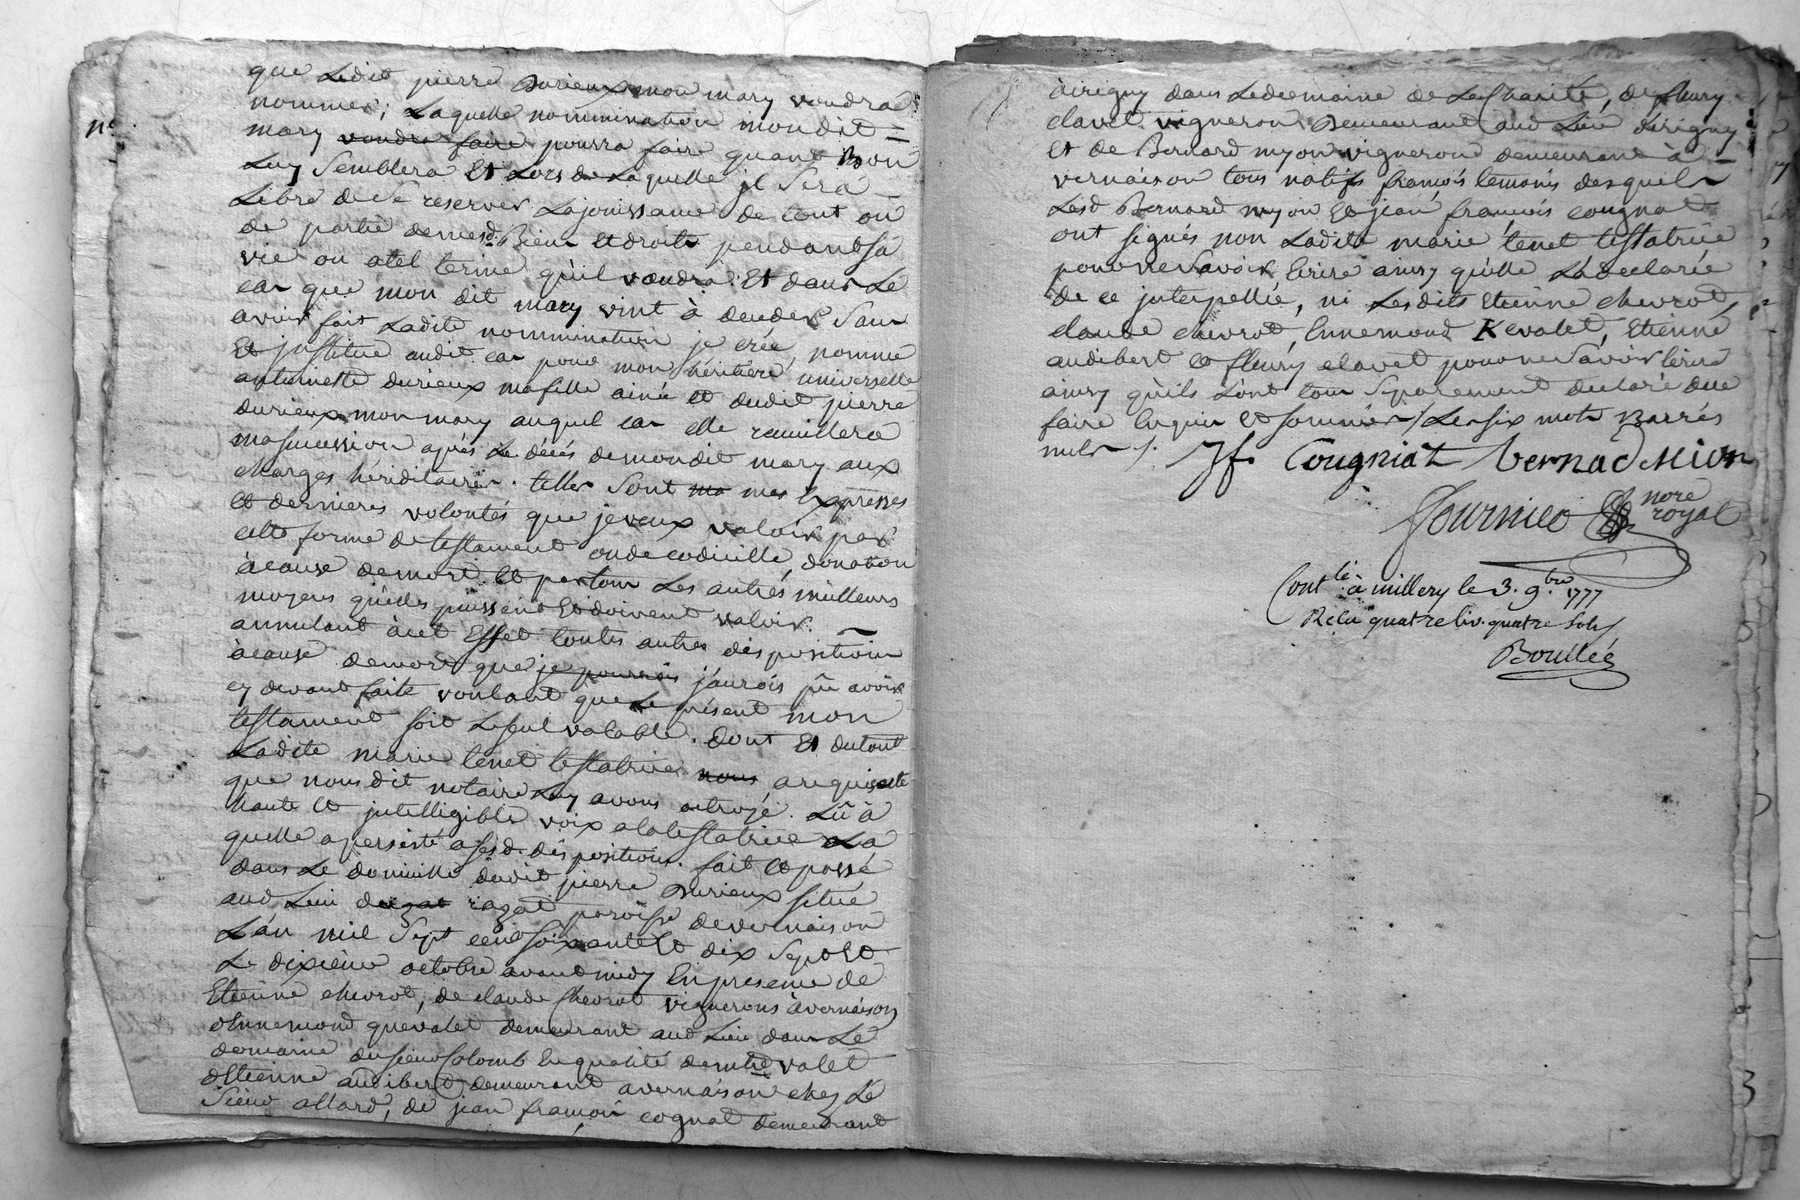 que Ledit pierre Durieux mon mary voudra
nommer; Laquelle nommination mondit =
mary voudra faire pourra faire quand Bon
Luy Semblera Et Lors de Laquelle jl Sera
Libre de Se reserver Lajouissance de tout ou
de partie de mesd. Biens Et droits pendant sa
vie ou atel terme qu'il voudra. Et dans Le
cas que mon dit mary vint à deceder Sans
avoir fait Ladite nommination je crée, nomme
Et jnstitue audit cas pour mon héritière universelle
antoinette durieux ma fille ainée et dudit pierre
durieux mon mary auquel cas elle recuillera
ma succession aprés Le décés de mondit mary aux
charges héréditaires. telles Sont ma mes Expresses
et dernieres volontés que je veux valoir par
cette forme de testament ou de codicille, donation
àcause demort. Et par tous Les autres meilleurs
moyens qu'elles puissent Et doivent valoir.
annulant àcet Effet toutes autres dispositions
àcause demort que je pourrois j'aurois pû avoir
cy devant faite voulant que Le présent mon
testament soit Le seul valable. Dont Et du tout
Ladite marie tenet testatrice nous a requis acte
que nous dit notaire Luy avons octroyé. Lû à
haute et jntelligible voix a la testatrice La
quelle a persisté a ses d. dispositions. fait et passé
dans Le domicille dudit pierre Durieux situé
aud Lieu de razat paroisse de vernaison
L'an mil Sept cent soixante Et dix Sept Et
Le dixième octobre avant midy En presence de
Etienne chevrot, de claude Chevrot vignerons à vernaison
d'Ennemond quevalet demeurant aud Lieu dans Le
domaine du sieur Colomb En qualité de mtre valet
d'Etienne audibert demeurant a vernaison chez Le
Sieur allard, de jean françois cognat demeurant
à irigny dans Le domaine de La Charité, de fleury
clavel vigneron Demeurant aud Lieu d'irigny
Et de Bernard myon vigneron demeurant à
vernaison tous natifs françois temoins desquels
Lesd Bernard myon Et jean françois cougnat
ont signés non Ladite marie tenet testatrice
pour ne Savoir Ecrire ainsy qu'elle L'a declarée
de ce jnterpellée, ni Lesdits Etienne chevrot,
claude chevrot, Ennemond Kevalet, Etienne
audibert et fleury clavel pour ne Savoir Ecrire
ainsy qu'ils L'ont tous Separement declaré due
faire Enquis Et sommés / Les six mots Barrés
nuls /.
Jf Cougniat Vernad Mion
fournier nore
royal
Contlé à millery le 3. 9.bre 1777
Relu quatre liv. quatre sols
Bouilée